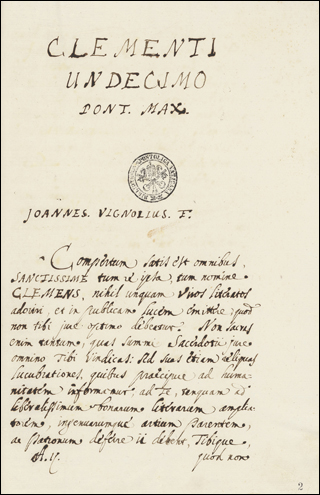 CLEMENTI
UNDECIMO
PONT. MAX.
JOANNES. VIGNOLIUS. F.
Compertum satis est omnibus,
SANCTISSIME tum re ipsa, tum nomine
CLEMENS, nihil unquam Viros literatos
adoriri, et in publicam lucem emittere, quod
non tibi jure optimo debeatur. Non sacras
enim tantum, quas summi Sacerdotii jure
omnino Tibi Vindicas; sed suas etiam reliquas
lucubrationes, quibus praecipue ad huma-
nitatem informemur, ad Te, tanquam ad
liberalissimum bonarum literarum amplia-
torem, ingenuarumque artium parentem,
ac patronum deferre ii debent, Tibique,
quod non
2